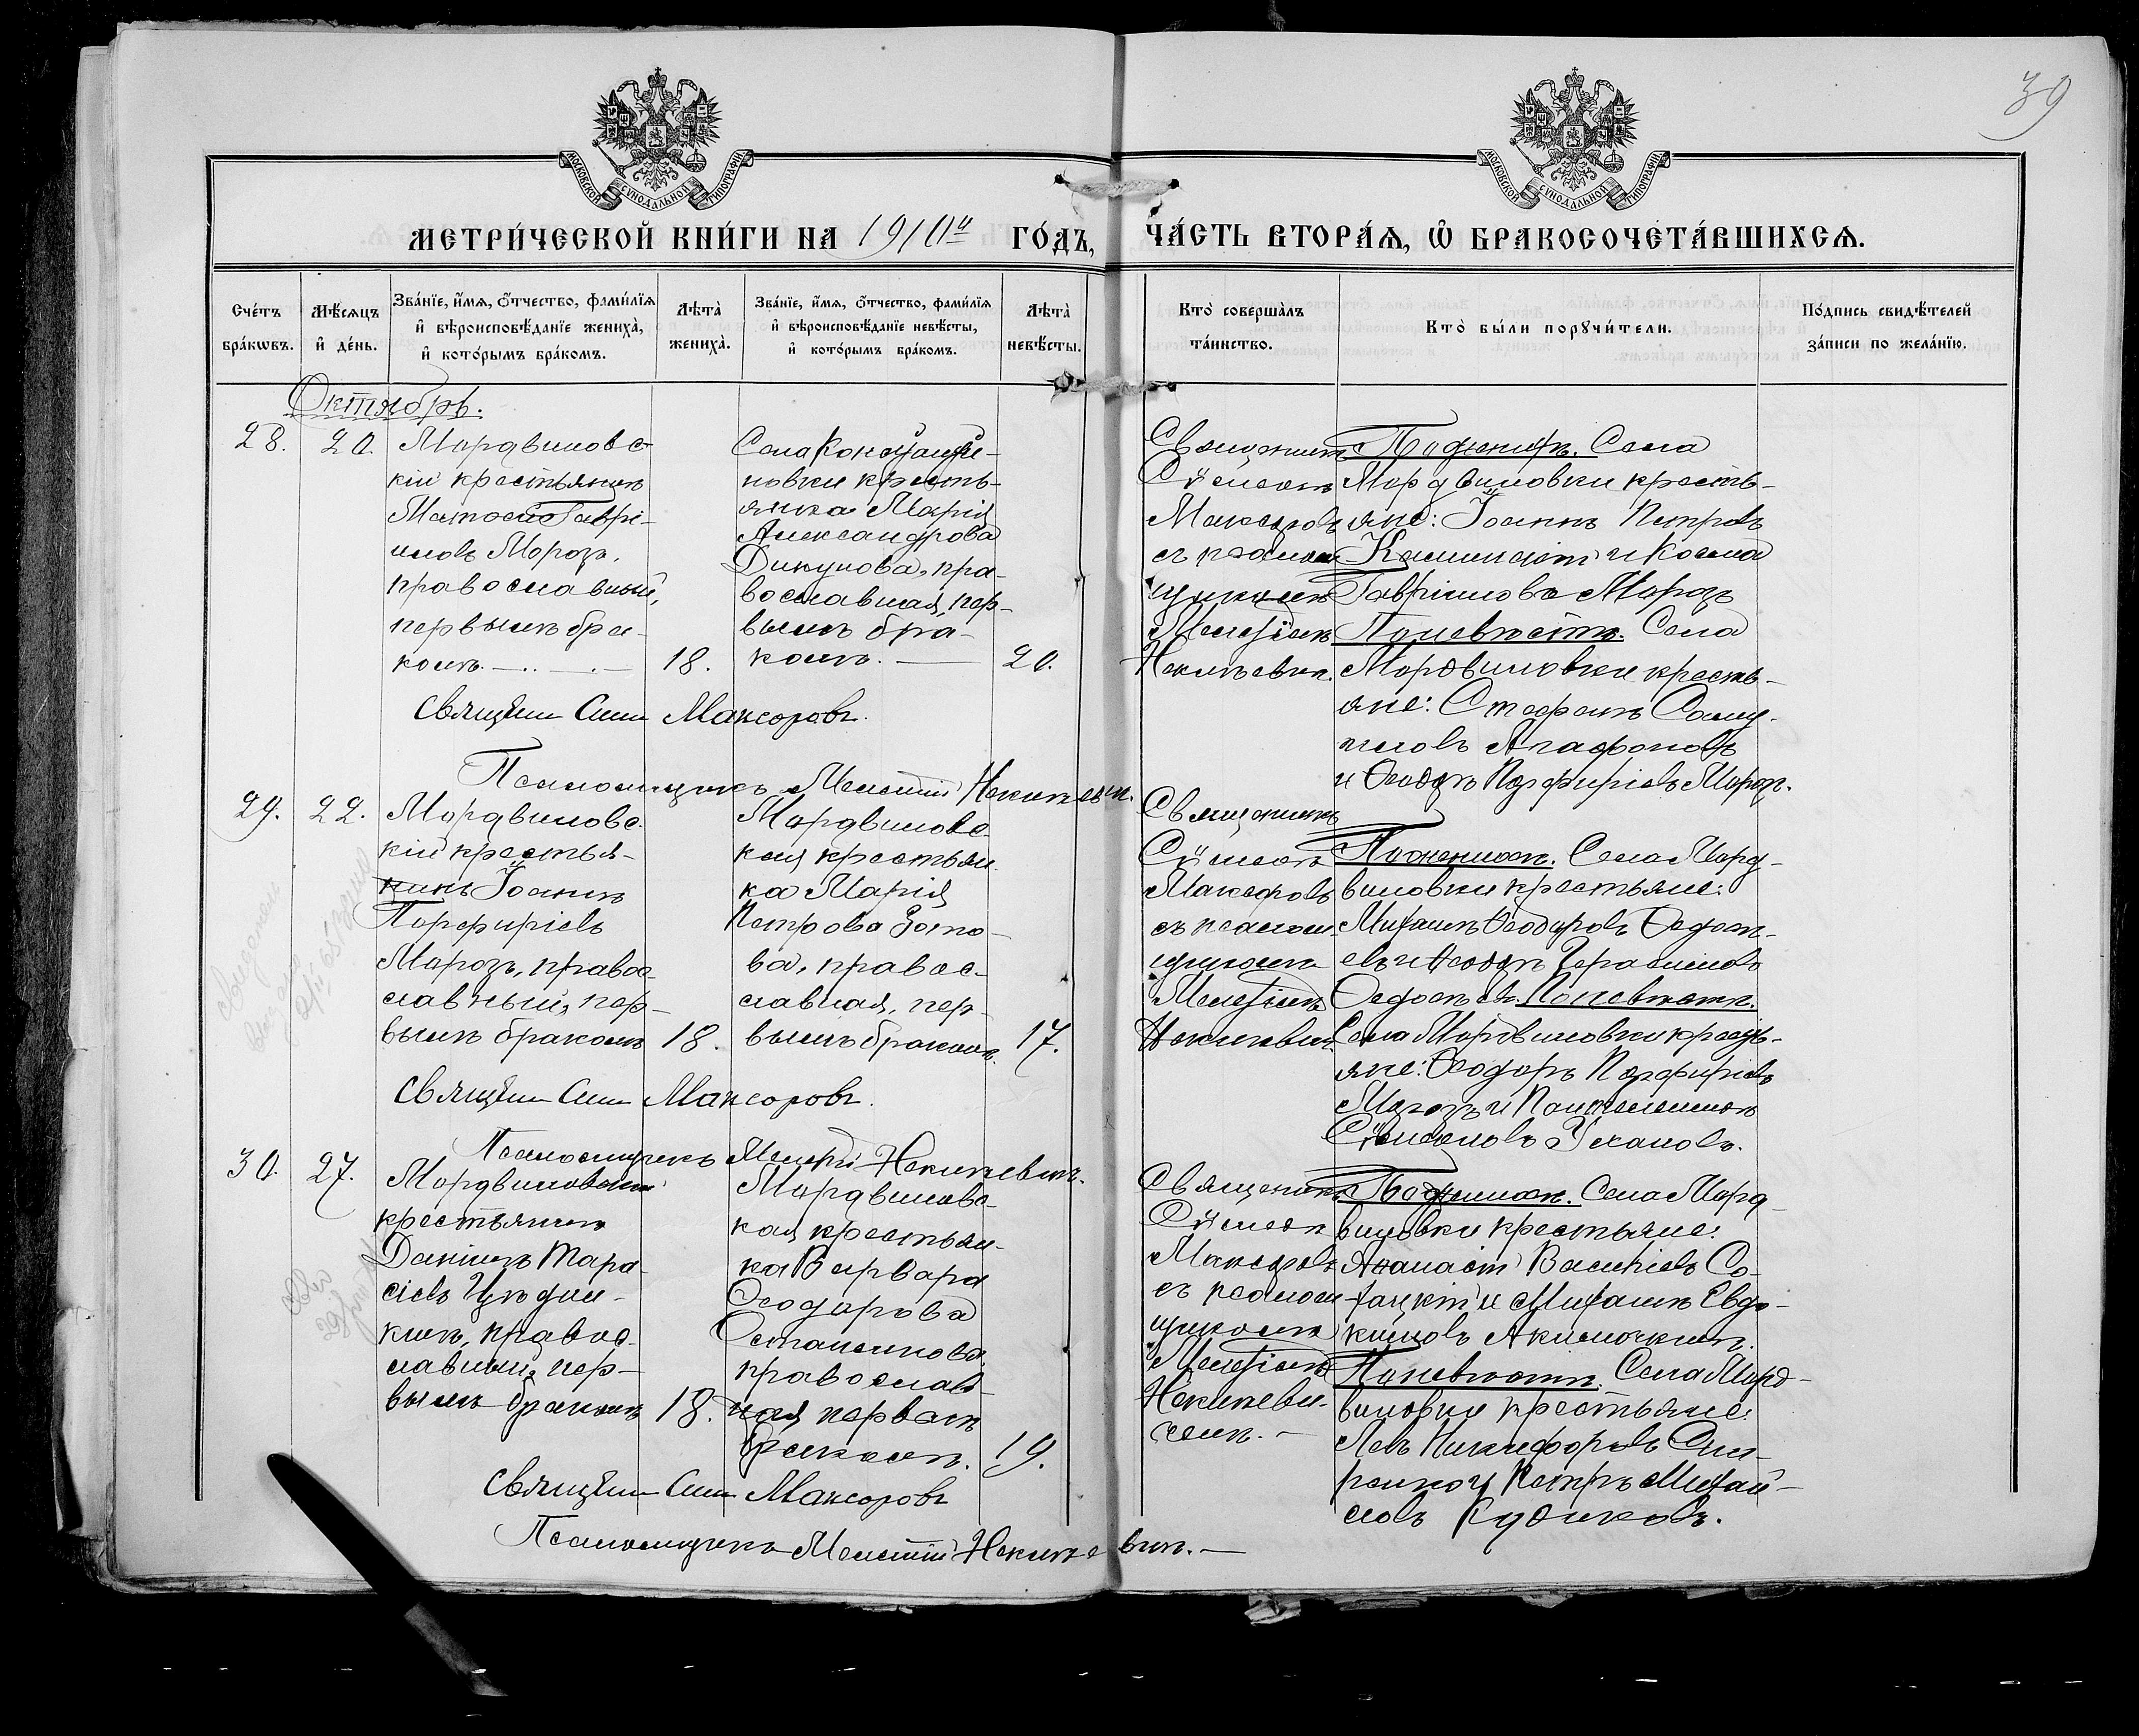 39
МОСКОВСКОЙ СѴНОДАЛЬНОЙ ТИПОГРАФІИ
МОСКОВСКОЙ СѴНОДАЛЬНОЙ ТИПОГРАФІИ
МЕТРИ́ЧЕСКОЙ КНИ́ГИ НА 1910й ГО́ДЪ,
ЧА́СТЬ ВТОРА́Ѧ, Ѽ БРАКОСОЧЕТА́ВШИХСѦ.
Сче́тъ
бра́кѡвъ.
Мѣ́сяцъ
и҆ де́нь.
Зва́нїе, и҆́мѧ, ѻ҆́тчество, фами́лїѧ
и҆ вѣроисповѣ́данїе жениха̀,
и҆ кото́рымъ бра́комъ.
Лѣ́та
жениха̀.
Зва́нїе, и҆́мѧ, ѻ҆́тчество, фами́лїѧ
и҆ вѣроисповѣ́данїе невѣ́сты,
и҆ кото́рымъ бра́комъ.
Лѣ́та
невѣ́сты.
Кто̀ соверша́лъ
та́инство.
Кто̀ бы́ли порꙋчи́тели.
По́дпись свидѣ́телей
за́писи по жела́нїю.
Октябрь.
28.
20.
Мордвиновс-
кій крестьянинъ
Гаврі-
иловъ Морозъ,
православный,
первымъ бра-
комъ.
18.
Села Константи-
новки кресть-
янка Марія
Александрова
Дикунова, пра-
вославная, пер-
вымъ бра-
комъ.
20.
Священникъ
Сѵмеонъ
Максоровъ
съ псалом-
щикомъ
Мелетіемъ
По женихѣ. Села
Мордвиновки кресть-
яне: Іоаннъ Петровъ
и Косма
Гавріиловъ Морозъ
По невѣстѣ. Села
Мордвиновки кресть-
яне: Стефанъ Саму-
иловъ Агафоновъ
и Ѳеодоръ Порфиріевъ Морозъ.
Священникъ Сим. Максоровъ.
Псаломщикъ Мелетій
29.
22.
Мордвиновс-
кій крестья-
нинъ Іоаннъ
Порфиріевъ
Морозъ, правос-
лавный, пер-
вымъ бракомъ
18.
Мордвиновс-
кая крестьян-
ка Марія
Петрова Зото-
ва, правос-
лавная, пер-
вымъ бракомъ.
17.
Священникъ
Сѵмеонъ
Максоровъ
съ псалом-
щикомъ
Мелетіемъ
По женихѣ. Села Морд-
виновки крестьяне:
Михаилъ Ѳеодоровъ Ѳедось-
евъ и Ѳеодоръ Герасимовъ
Ѳедосьевъ. По невѣстѣ.
Села Мордвиновки кресть-
яне: Ѳеодоръ Порфиріевъ
Морозъ и Пантелеимонъ
Сѵмеоновъ Усхановъ.
Священникъ Сим. Максоровъ.
Псаломщикъ Мелетій
30.
27.
Мордвиновскій
крестьянинъ
Даніилъ Тара-
сіевъ
правос-
лавный, пер-
вымъ бракомъ
18.
Мордвиновс-
кая крестьян-
ка Варвара
Ѳеодорова
православ-
ная первымъ
бракомъ.
19.
Священникъ
Сѵмеонъ
Максоровъ
съ псалом-
щикомъ
Мелетіемъ
По женихѣ. Села Морд-
виновки крестьяне:
Василіевъ
и Михаилъ Евдо-
кимовъ Акимочкинъ.
По невѣстѣ. Села Морд-
виновки крестьяне:
Левъ Никифоровъ
Петръ Михай-
ловъ Кудиковъ.
Священникъ Сим. Максоровъ
Псаломщикъ Мелетій